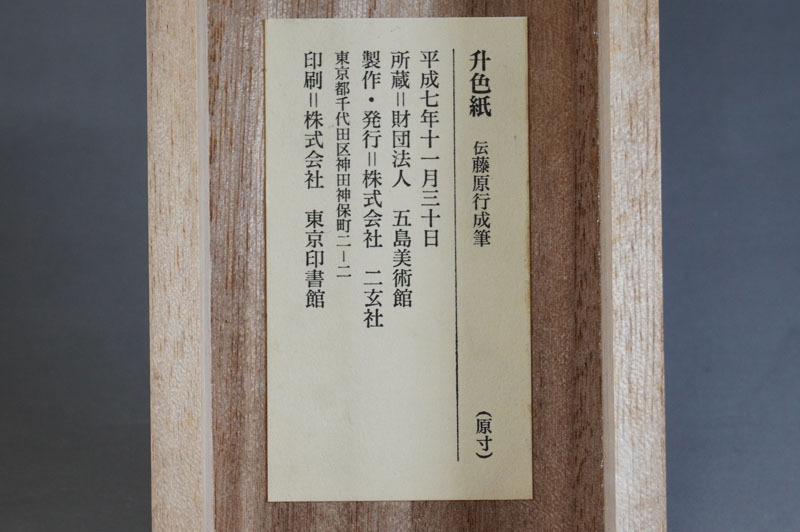 升色紙　伝藤原行成筆　（原寸）
平成七年十一月三十日
所蔵＝財団法人　五島美術館
製作・発行＝株式会社　二玄社
東京都千代田区神田神保町二－二
印刷＝株式会社　東京印書館